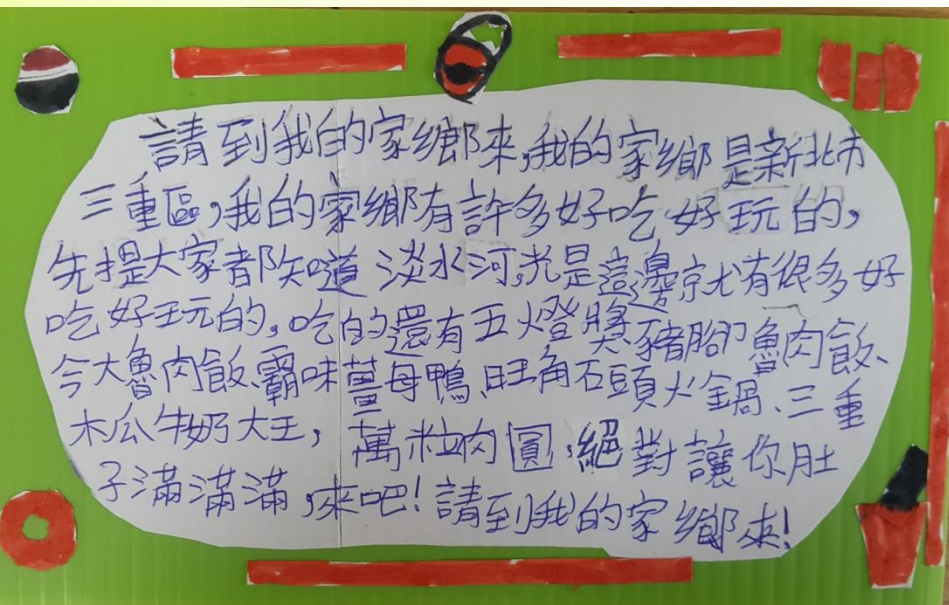 請到我的家鄉來,我的家鄉是新北市
三重區,我的家鄉有許多好吃好玩的,
先提大家都知道淡水河,光是這邊就有很多好
吃好玩的,吃的還有五燈獎豬腳魯肉飯、
今大魯肉飯、霸味薑母鴨、旺角石頭火鍋、三重
木瓜牛奶大王,萬粒肉圓,絕對讓你肚
子滿滿滿,來吧!請到我的家鄉來!